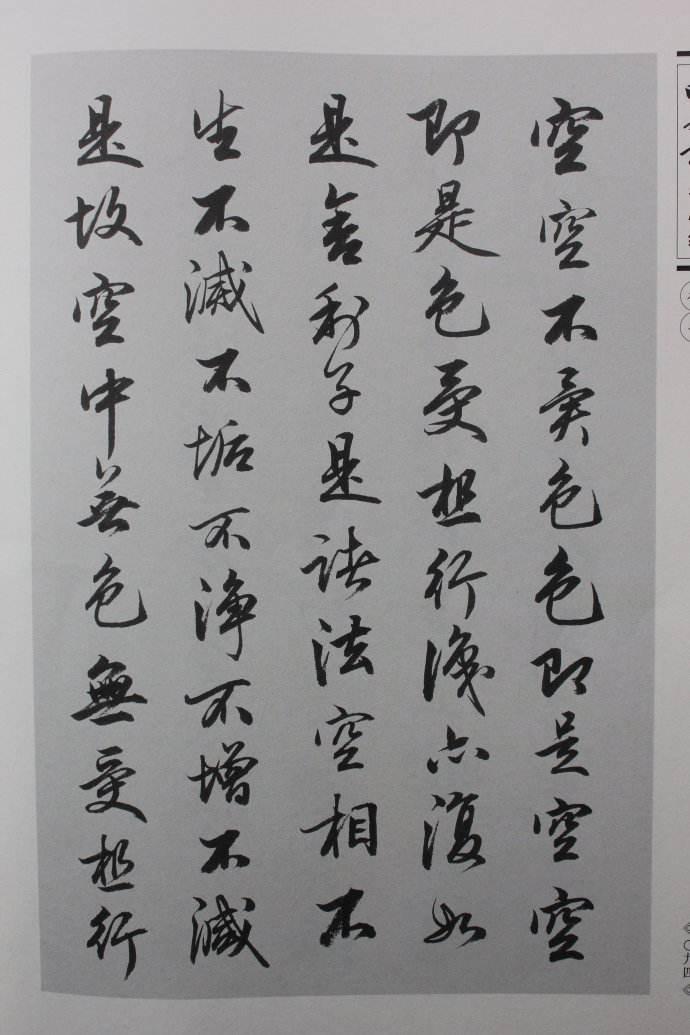 空空不異色色即是空空
即是色受想行識亦復如
是舍利子是諸法空相不
生不滅不垢不淨不增不減
是故空中無色無受想行
〇九四